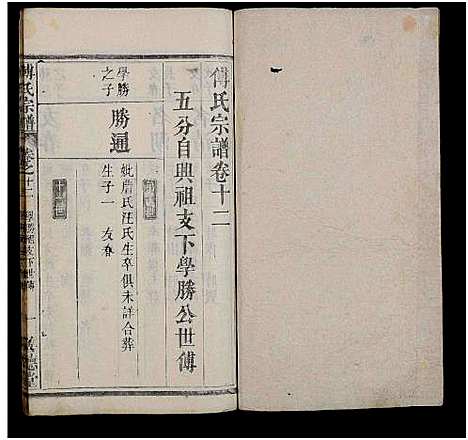 傅氏宗譜卷十二
五分自興祖支下學勝公世傳
學勝之子
勝通
妣詹氏汪氏生卒俱未詳合葬
生子一 友春
傅氏宗譜
卷之十二
學勝祖支下世傳
一